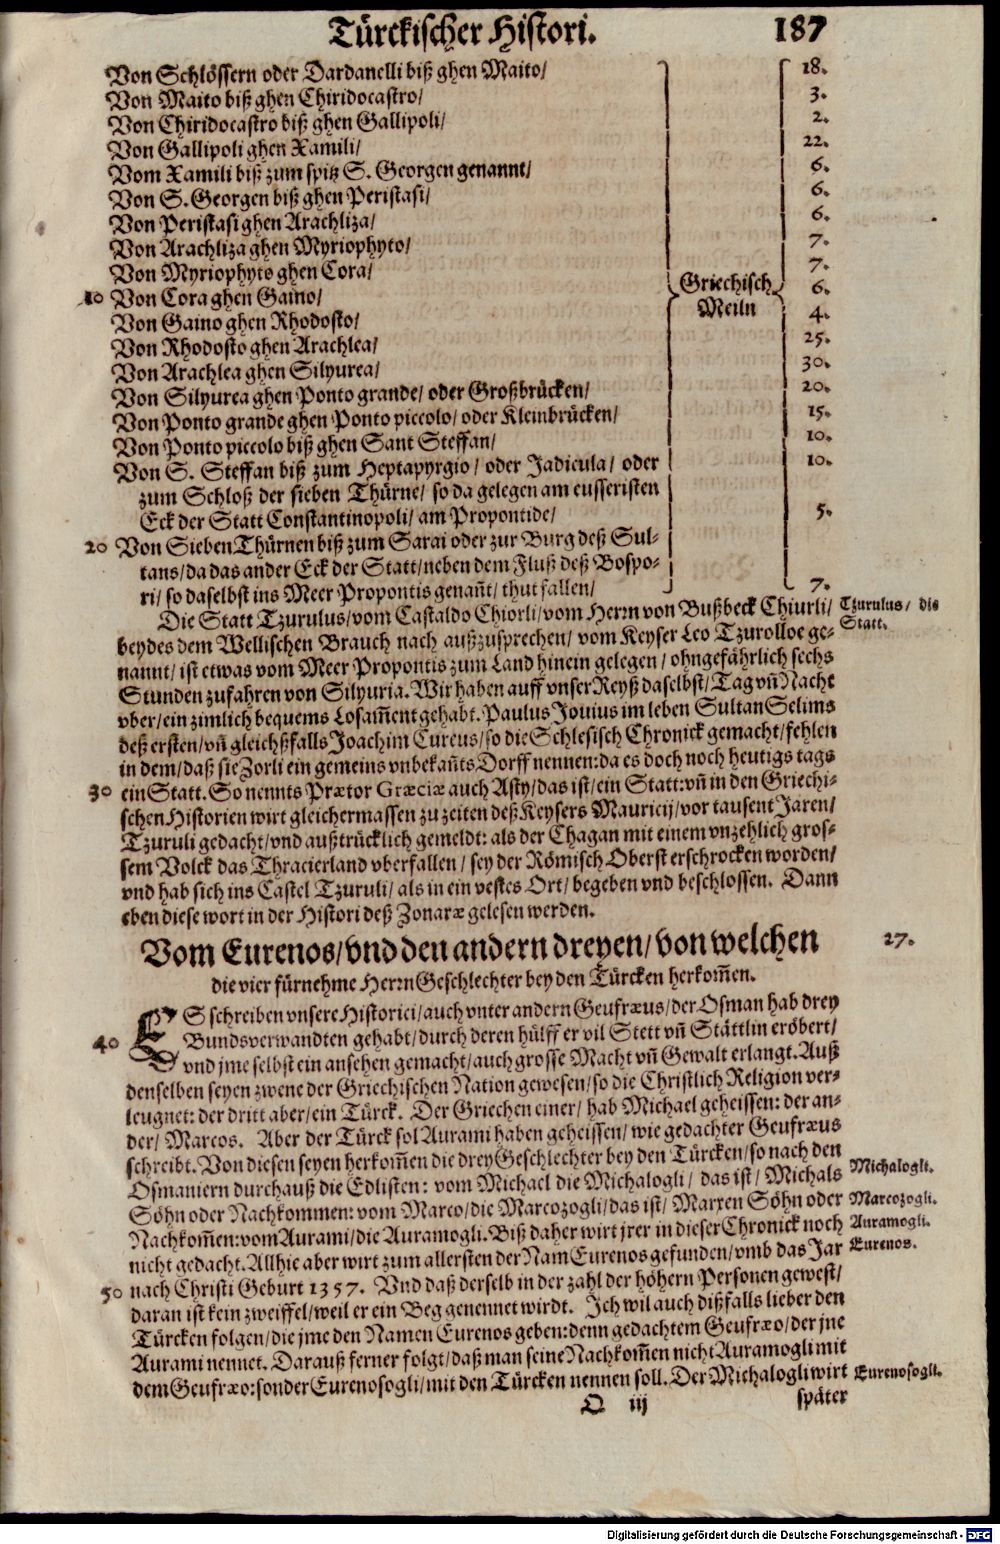 Türckischer Histori. 187
Von Schlössern oder Dardanelli biß ghen Maito/ 18.
Von Maito biß ghen Chiridocastro/ 3.
Von Chiridocastro biß ghen Gallipoli/ 2.
Von Gallipoli ghen Xamili/ 22.
Vom Xamili biß zum spitz S. Georgen genannt/ 6.
Von S. Georgen biß ghen Peristasi/ 6.
Von Peristasi ghen Arachliza/ 6.
Von Arachliza ghen Myriophyto/ 7.
Von Myriophyto ghen Cora/ 7.
10 Von Cora ghen Gaino/ Griechisch 6.
Von Gaino ghen Rhodosto/ Meiln 4.
Von Rhodosto ghen Arachlea/ 25.
Von Arachlea ghen Silyurea/ 30.
Von Silyurea ghen Ponto grande/ oder Großbrücken/ 20.
Von Ponto grande ghen Ponto piccolo/ oder Kleinbrücken/ 15.
Von Ponto piccolo biß ghen Sant Steffan/ 10.
Von S. Steffan biß zum Heptapyrgio/ oder Jadicula/ oder 10.
zum Schloß der sieben Thürne/ so da gelegen am eusseristen
Eck der Statt Constantinopoli/ am Propontide/ 5.
20 Von Sieben Thürnen biß zum Sarai oder zur Burg deß Sul-
tans/ da das ander Eck der Statt/ neben dem Fluß deß Bospo-
ri/ so daselbst ins Meer Propontis genañt/ thut fallen/ 7.
Die Statt Tzurulus/ vom Castaldo Chiorli/ vom Herrn von Bußbeck Chiurli/ Tzurulus/ die
beydes dem Wellischen Brauch nach außzusprechen/ vom Keyser Leo Tzurolloe ge- Statt.
nannt/ ist etwas vom Meer Propontis zum Land hinein gelegen/ ohngefährlich sechs
Stunden zufahren von Silyuria. Wir haben auff vnser Reyß daselbst/ Tag vñ Nacht
vber/ ein zimlich bequems Losam̃ent gehabt. Paulus Jouius im leben Sultan Selims
deß ersten/ vñ gleichßfalls Joachim Cureus/ so die Schlesisch Chronick gemacht/ fehlen
in dem/ daß sie Zorli ein gemeins vnbekañts Dorff nennen: da es doch noch heutigs tags
30 ein Statt. So nennts Prætor Græciæ auch Asty/ das ist/ ein Statt: vñ in den Griechi-
schen Historien wirt gleichermassen zu zeiten deß Keysers Mauricij/ vor tausent Jaren/
Tzuruli gedacht/ vnd außtrücklich gemeldt: als der Chagan mit einem vnzehlich gros-
sem Volck das Thracierland vberfallen/ sey der Römisch Oberst erschrocken worden/
vnd hab sich ins Castel Tzuruli/ als in ein vestes Ort/ begeben vnd beschlossen. Dann
eben diese wort in der Histori deß Zonaræ gelesen werden.
Vom Eurenos/ vnd den andern dreyen/ von welchen 27.
die vier fürnehme Herrn Geschlechter bey den Türcken herkom̃en.
ES schreiben vnsere Historici/ auch vnter andern Geufræus/ der Osman hab drey
40 Bundsverwandten gehabt/ durch deren hülff er vil Stett vñ Stättlin eröbert/
vnd jme selbst ein ansehen gemacht/ auch grosse Macht vñ Gewalt erlangt. Auß
denselben seyen zwene der Griechischen Nation gewesen/ so die Christlich Religion ver-
leugnet: der dritt aber/ ein Türck. Der Griechen einer/ hab Michael geheissen: der an-
der/ Marcos. Aber der Türck sol Aurami haben geheissen/ wie gedachter Geufræus
schreibt. Von diesen seyen herkom̃en die drey Geschlechter bey den Türcken/ so nach den
Osmaniern durchauß die Edlisten: vom Michael die Michalogli/ das ist/ Michals Michalogli.
Söhn oder Nachkommen: vom Marco/ die Marcozogli/ das ist/ Marxen Söhn oder Marcozogli.
Nachkom̃en: vom Aurami/ die Auramogli. Biß daher wirt jrer in dieser Chronick noch Auramogli.
nicht gedacht. Allhie aber wirt zum allersten der Nam Eurenos gefunden/ vmb das Jar Eurenos.
50 nach Christi Geburt 1357. Vnd daß derselb in der zahl der höhern Personen gewest/
daran ist kein zweiffel/ weil er ein Beg genennet wirdt. Ich wil auch dißfalls lieber den
Türcken folgen/ die jme den Namen Eurenos geben: denn gedachtem Geufræo/ der jne
Aurami nennet. Darauß ferner folgt/ daß man seine Nachkom̃en nicht Auramogli mit
dem Geufræo: sonder Eurenosogli/ mit den Türcken nennen soll. Der Michalogli wirt Eurenosogli.
O iij später
Digitalisierung gefördert durch die Deutsche Forschungsgemeinschaft - DFG